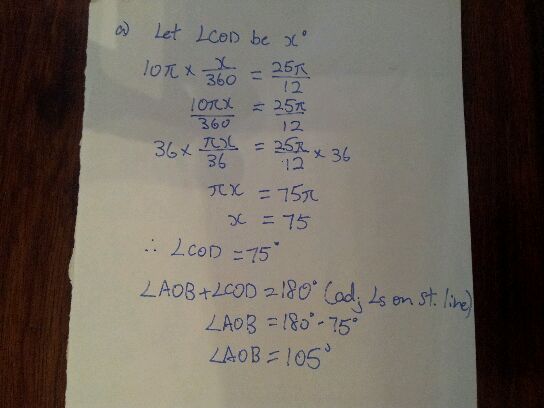 a) Let ∠COD be x°
10π × x/360 = 25π/12
10πx/360 = 25π/12
36 × πx/36 = 25π/12 × 36
πx = 75π
x = 75
∴ ∠COD = 75°
∠AOB + ∠COD = 180° (adj ∠s on st. line)
∠AOB = 180° - 75°
∠AOB = 105°